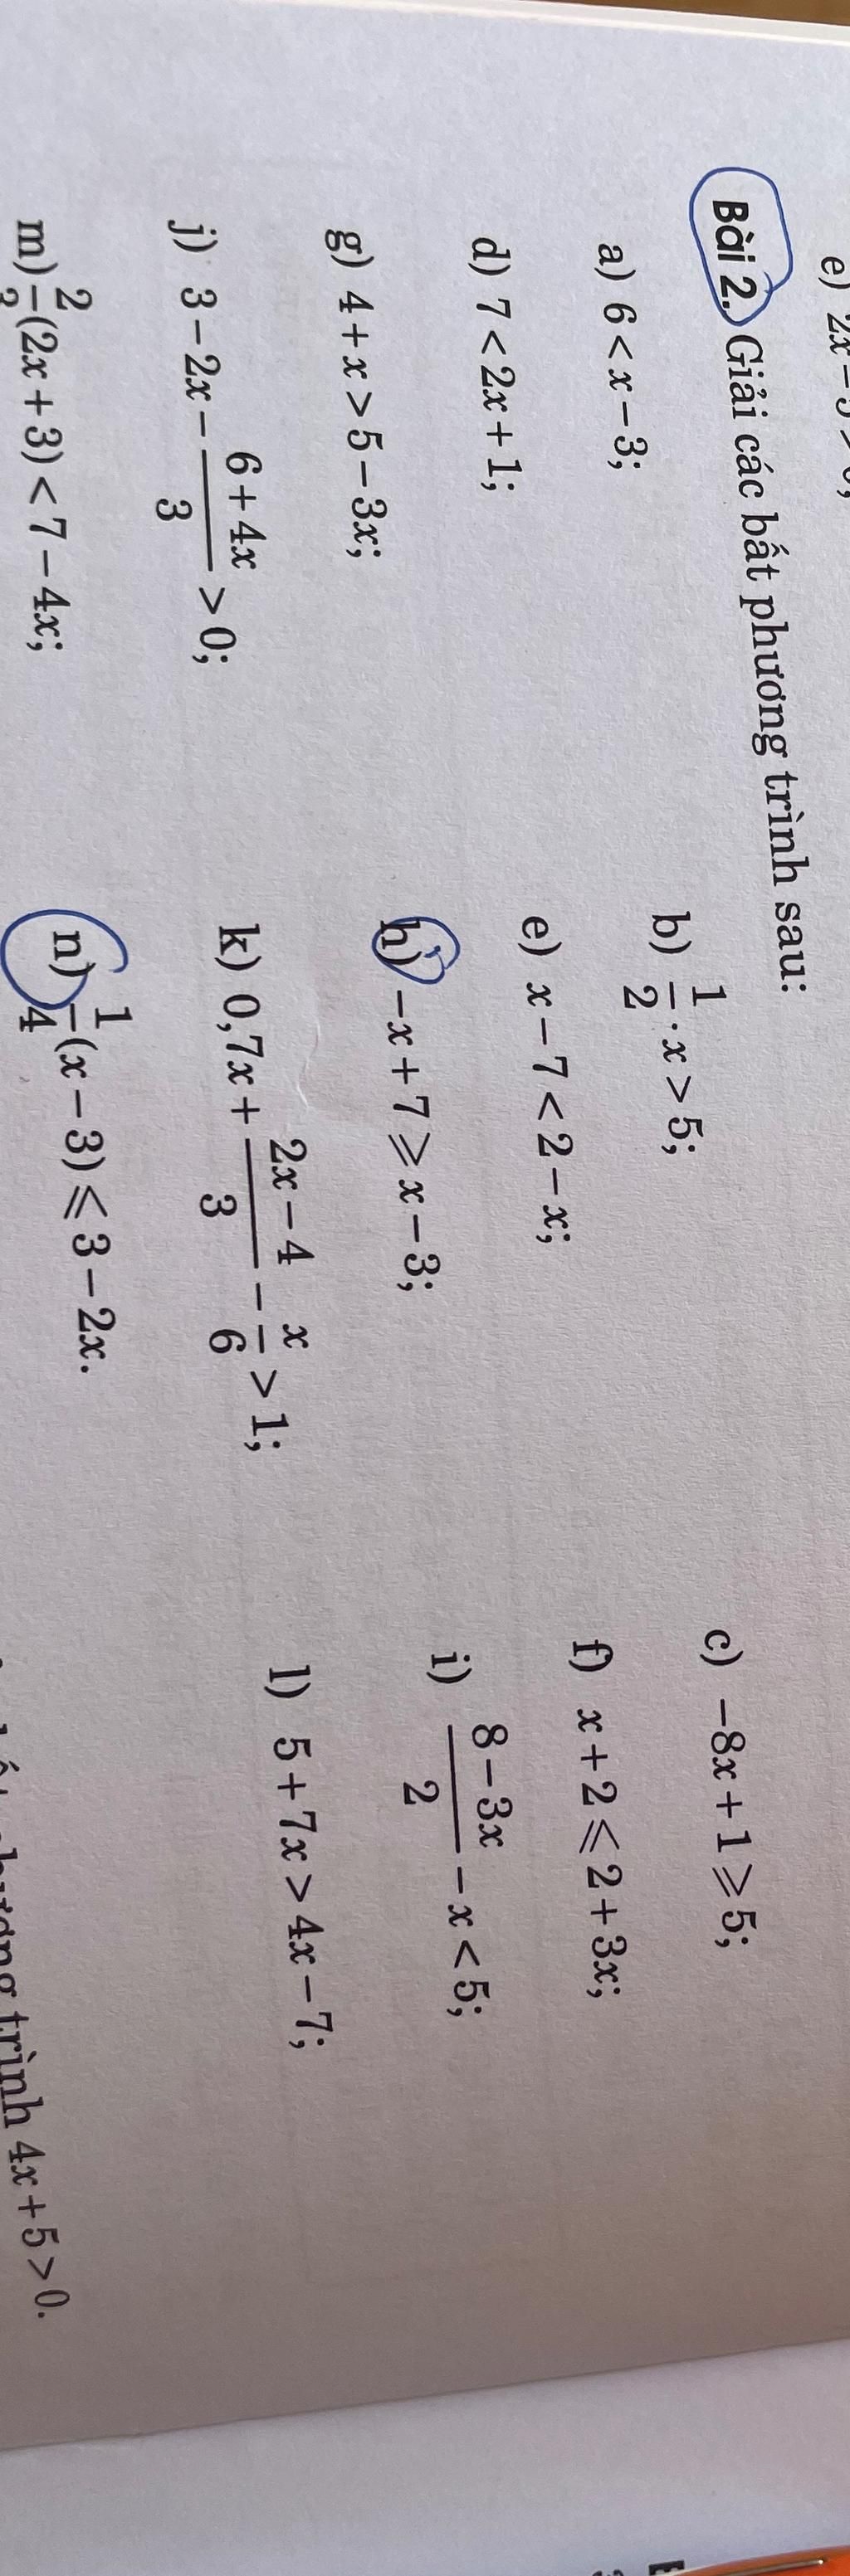 e) 2x –
Bài 2. Giải các bất phương trình sau:
a) 6 < x – 3; b) 1/2 · x > 5; c) –8x + 1 ⩾ 5;
d) 7 < 2x + 1; e) x – 7 < 2 – x; f) x + 2 ⩽ 2 + 3x;
g) 4 + x > 5 – 3x; h) –x + 7 ⩾ x – 3; i) (8 – 3x)/2 – x < 5;
j) 3 – 2x – (6 + 4x)/3 > 0; k) 0,7x + (2x – 4)/3 – x/6 > 1; l) 5 + 7x > 4x – 7;
m) 2/3(2x + 3) < 7 – 4x; n) 1/4(x – 3) ⩽ 3 – 2x.
trình 4x + 5 > 0.